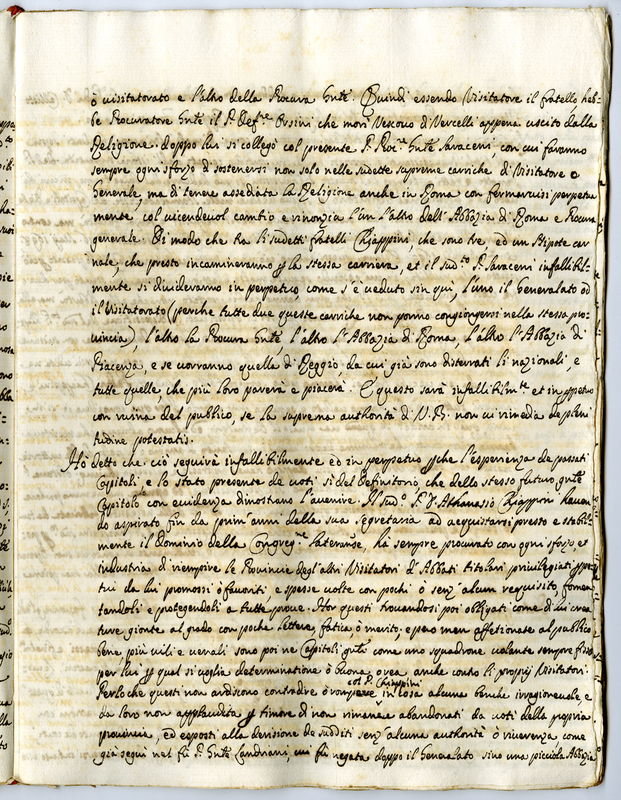 ò visitatorato e l'altro della Procura Gnłe. Quindi essendo Visitatore il fratello, heb-
be Procuratore Gnłe il P. Def.re Orsini che morì Vescovo di Vercelli appena uscito dalla
Religione: doppo lui si collegò col presente P. Proc.re Gnłe Saraceni, con cui faranno
sempre ogni sforzo di sostenersi non solo nelle sudette supreme carriche di Visitatore e
Generale, ma di tenere assediata la Religione anche in Roma con fermarvisi perpetua
mente col vicendevol cambio e rinonzia l'un l'altro dell'Abbazia di Roma e Procura
generale. Di modo che tra li sudetti fratelli Chiappini, che sono tre, ed un Nipote car
nale, che presto incamineranno p la stessa carriera, et il sud.to P. Saraceni infallibil-
mente si divideranno in perpetuo, come s'è veduto sin quì, l'uno il Generalato od
il Visitatorato (perche tutte due queste carriche non ponno congiongersi nella stessa pro-
vincia), l'altro la Procura Gnłe l'altro l'Abbazia di Roma, l'altro l'Abbazia di
Piacenza, e se vorranno quella di Reggio da cui già sono disterrati li nazionali, e
tutte quelle, che più loro parerà e piacerà. E questo sarà infallibilm.te et in ppetuo
con ruina del publico, se la suprema authorità di V. B. non vi rimedia de pleni
tudine potestatis.
Hò detto che ciò seguirà infallibilmente ed in perpetuo pche l'esperienza de passati
Capitoli, e lo stato presente de voti sì del definitorio che dello stesso futuro Gnłe
Capitolo con evidenza dimostrano l'avenire. Il sud.o P. D. Athanasio Chiappini haven
do aspirato fin da prim'anni della sua segretaria ad acquistarsi presto e stabil-
mente il dominio della Congreg.ne lateranse, hà sempre procurato con ogni sforzo, et
industria di riempire le Provincie degl'altri Visitatori d'Abbati titolari privilegiati ppe
tui da lui promossi ò favoriti, e spesse volte con pochi ò senz'alcun requisito, fomen
tandoli e protegendoli a tutte prove. Hor questi trovandosi poi obligati come di lui crea
ture, gionte al grado con poche lettere, fatica, ò merito, e però men affetionate al publico
bene, più vili e venali sono poi ne Capitoli gnłi come uno squadrone volante sempre fisso
per lui p qual si voglia determinatione ò buona ò rea anche contro li proprij Visitatori.
Perloche questi non ardiscono contradire ò romperre col P. Chiappini in cosa alcuna benche irragionevole, e
da loro non applaudita p timore di non rimanere abandonati da voti della propria
provincia, ed esposti alla derisione de sudditi senz'alcuna authorità ò riverenza come
già seguì nel fù P. Gnłe Landriani, cui fù negata doppo il Generalato sino una picciola Abbazia